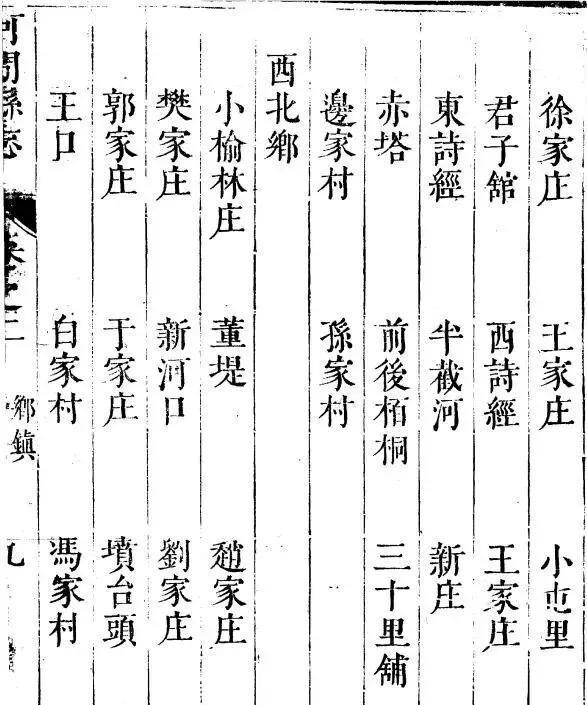 徐家庄　王家庄　小屯里
君子舘　西詩經　王家庄
東詩經　半截河　新庄
赤塔　前後栢桐　三十里舖
邊家村　孫家村
西北鄉
小榆林庄　董堤　趙家庄
樊家庄　新河口　劉家庄
郭家庄　于家庄　墳台頭
王口　白家村　馮家村
河間縣志　卷之二　鄉鎮　九